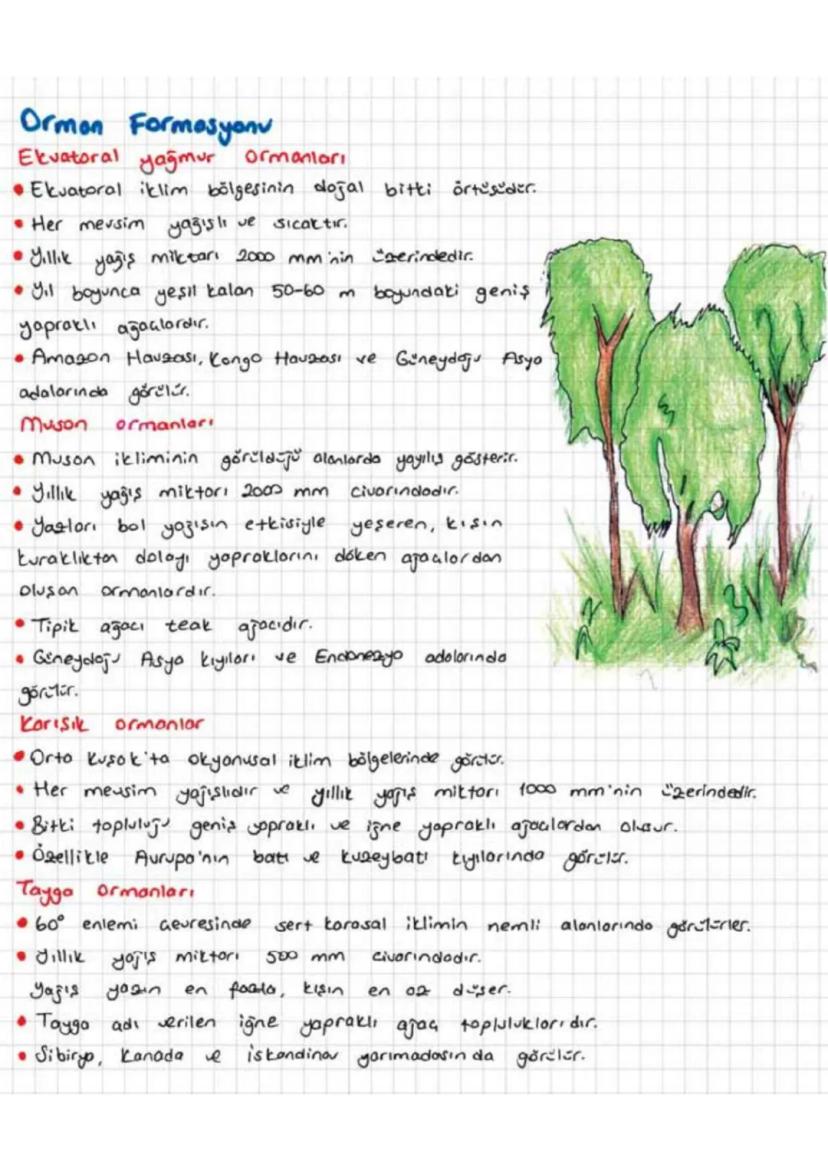 Orman Formasyonu
Ekvatoral yağmur ormanları
• Ekvatoral iklim bölgesinin doğal bitki örtüsüdür.
• Her mevsim yağışlı ve sıcaktır.
• Yıllık yağış miktarı 2000 mm'nin üzerindedir.
• Yıl boyunca yeşil kalan 50-60 m boyundaki geniş
yapraklı ağaçlardır.
• Amazon Havzası, Kongo Havzası ve Güneydoğu Asya
adalarında görülür.
Muson ormanları
• Muson ikliminin görüldüğü alanlarda yayılış gösterir.
• Yıllık yağış miktarı 2000 mm civarındadır.
• Yazları bol yağışın etkisiyle yeşeren, kışın
kuraklıktan dolayı yapraklarını döken ağaçlardan
oluşan ormanlardır.
• Tipik ağacı teak ağacıdır.
• Güneydoğu Asya kıyıları ve Endonezya adalarında
görülür.
Karışık ormanlar
• Orta Kuşak'ta okyanusal iklim bölgelerinde görülür.
• Her mevsim yağışlıdır ve yıllık yağış miktarı 1000 mm'nin üzerindedir.
• Bitki topluluğu geniş yapraklı ve iğne yapraklı ağaçlardan oluşur.
• Özellikle Avrupa'nın batı ve kuzeybatı kıyılarında görülür.
Tayga ormanları
• 60° enlemi çevresinde sert karasal iklimin nemli alanlarında görülürler.
• Yıllık yağış miktarı 500 mm civarındadır.
Yağış yazın en fazla, kışın en az düşer.
• Tayga adı verilen iğne yapraklı ağaç topluluklarıdır.
• Sibirya, Kanada ve İskandinav yarımadasında görülür.